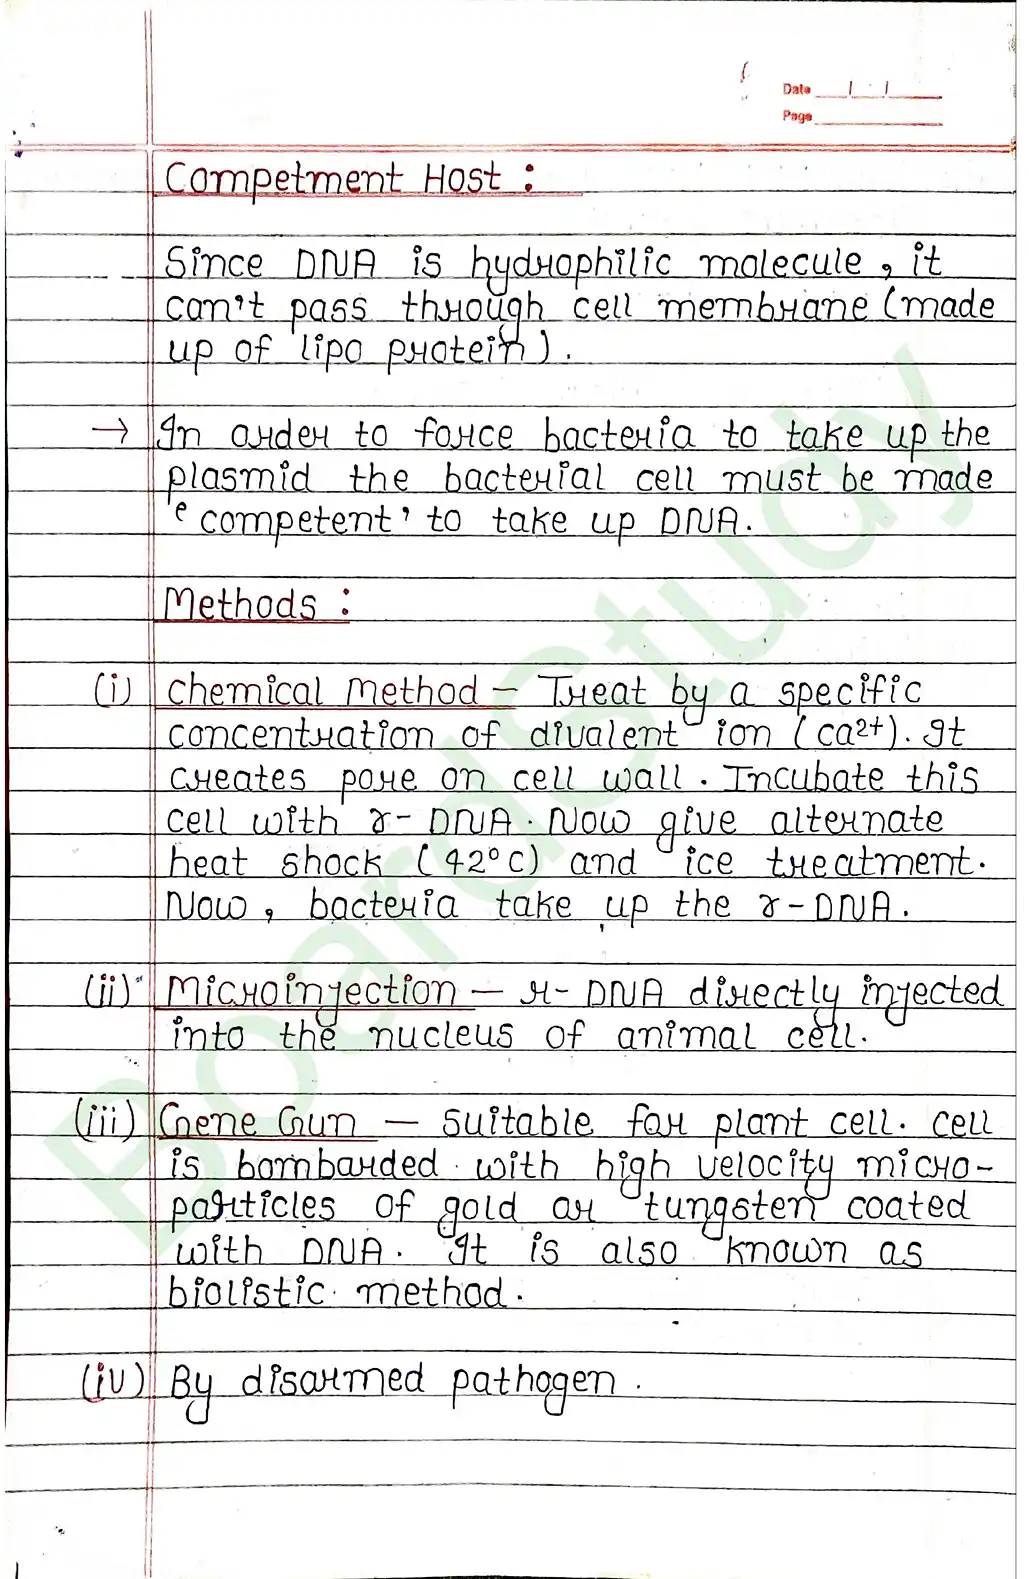 Date
Page
Competment Host :
Since DNA is hydrophilic molecule, it
can't pass through cell membrane (made
up of lipo protein).
→ In order to force bacteria to take up the
plasmid the bacterial cell must be made
'competent' to take up DNA.
Methods :
(i) Chemical Method – Treat by a specific
concentration of divalent ion (ca2+). It
creates pore on cell wall. Incubate this
cell with r-DNA. Now give alternate
heat shock (42°C) and ice treatment.
Now, bacteria take up the r-DNA.
(ii) Microinjection – r-DNA directly injected
into the nucleus of animal cell.
(iii) Gene Gun – Suitable for plant cell. cell
is bombarded with high velocity micro-
particles of gold or tungsten coated
with DNA. It is also known as
biolistic method.
(iv) By disarmed pathogen.
BoardStudy